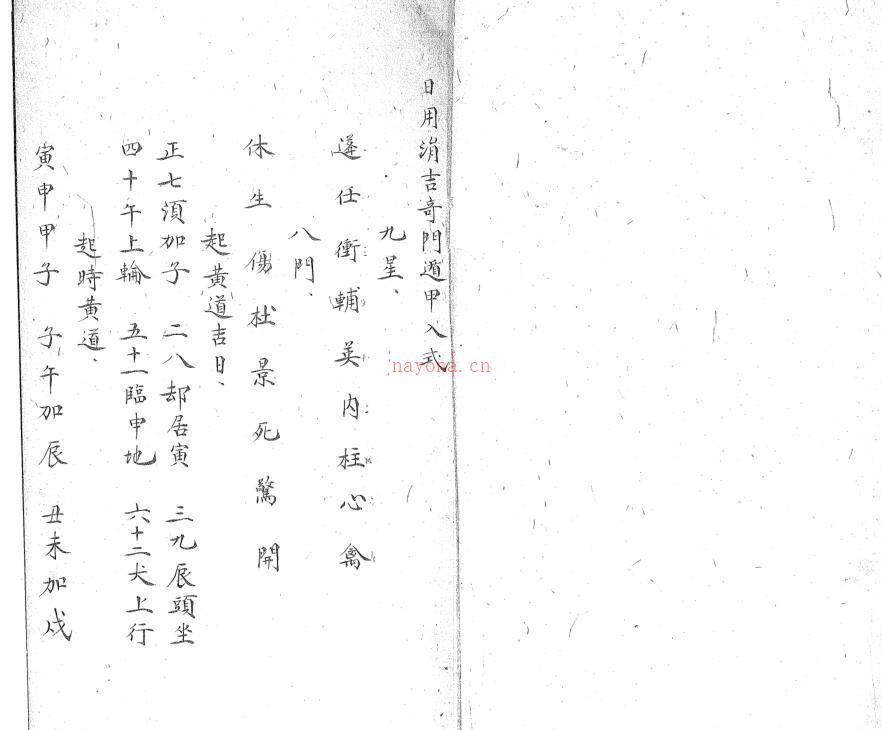 日用涓吉奇門遁甲入式
九星、
蓬任衝輔英内柱心禽
八門、
休生傷杜景死驚開
起黄道吉日、
正七須加子　二八却居寅　三九辰頭坐
四十午上輪　五十一臨申地　六十二犬上行
起時黄道、
寅申甲子　子午加辰　丑未加戌
nayona.cn